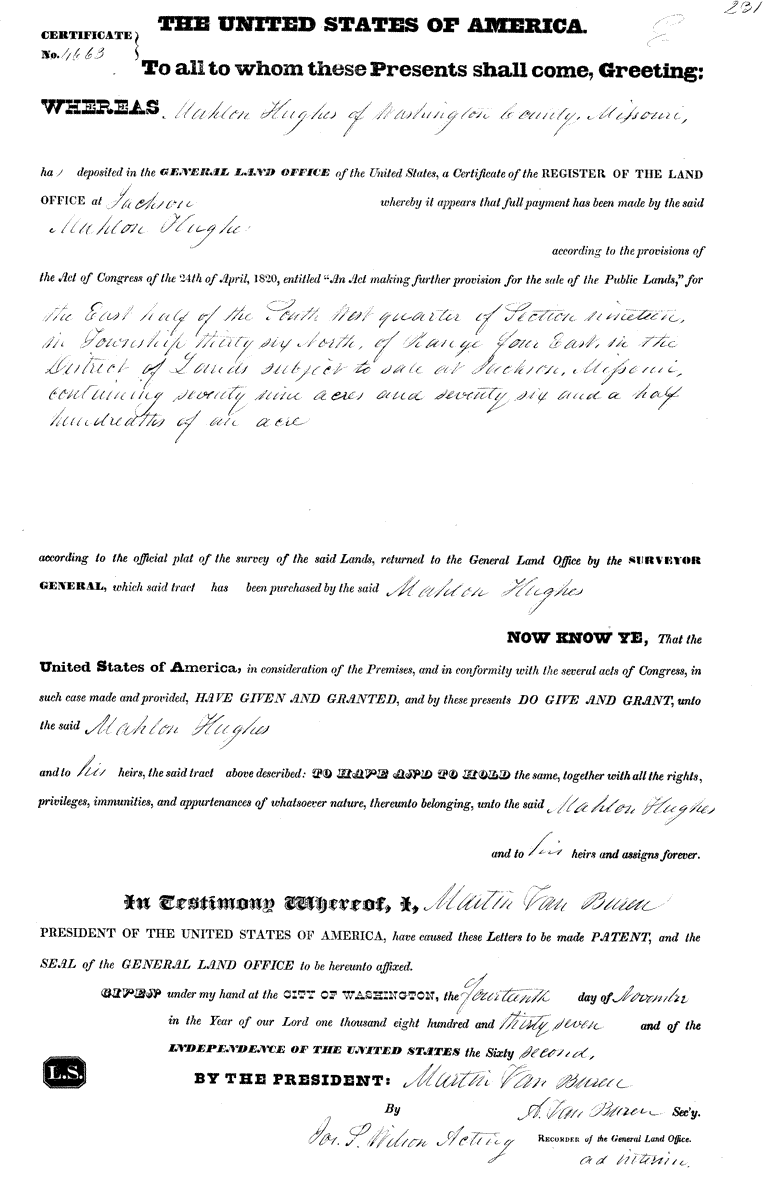 231
THE UNITED STATES OF AMERICA.
CERTIFICATE
No. 4663
To all to whom these Presents shall come, Greeting:
WHEREAS Mahlon Hughes of Washington County, Missouri,
has deposited in the GENERAL LAND OFFICE of the United States, a Certificate of the REGISTER OF THE LAND
OFFICE at Jackson whereby it appears that full payment has been made by the said
Mahlon Hughes
according to the provisions of
the Act of Congress of the 24th of April, 1820, entitled “An Act making further provision for the sale of the Public Lands,” for
the East half of the South West quarter of Section nineteen,
in Township thirty six North, of Range four East, in the
District of Lands subject to sale at Jackson, Missouri,
containing seventy nine acres and seventy six and a half
hundredths of an acre
according to the official plat of the survey of the said Lands, returned to the General Land Office by the SURVEYOR
GENERAL, which said tract has been purchased by the said Mahlon Hughes
NOW KNOW YE, That the
United States of America, in consideration of the Premises, and in conformity with the several acts of Congress, in
such case made and provided, HAVE GIVEN AND GRANTED, and by these presents DO GIVE AND GRANT, unto
the said Mahlon Hughes
and to his heirs, the said tract above described: TO HAVE AND TO HOLD the same, together with all the rights,
privileges, immunities, and appurtenances of whatsoever nature, thereunto belonging, unto the said Mahlon Hughes
and to his heirs and assigns forever.
In Testimony Whereof, I, Martin Van Buren
PRESIDENT OF THE UNITED STATES OF AMERICA, have caused these Letters to be made PATENT, and the
SEAL of the GENERAL LAND OFFICE to be hereunto affixed.
GIVEN under my hand at the CITY OF WASHINGTON, the fourteenth day of November
in the Year of our Lord one thousand eight hundred and thirty seven and of the
INDEPENDENCE OF THE UNITED STATES the Sixty second.
L.S.
BY THE PRESIDENT: Martin Van Buren
By A. Van Buren Sec'y.
Jos. S. Wilson Acting RECORDER of the General Land Office.
ad interim.